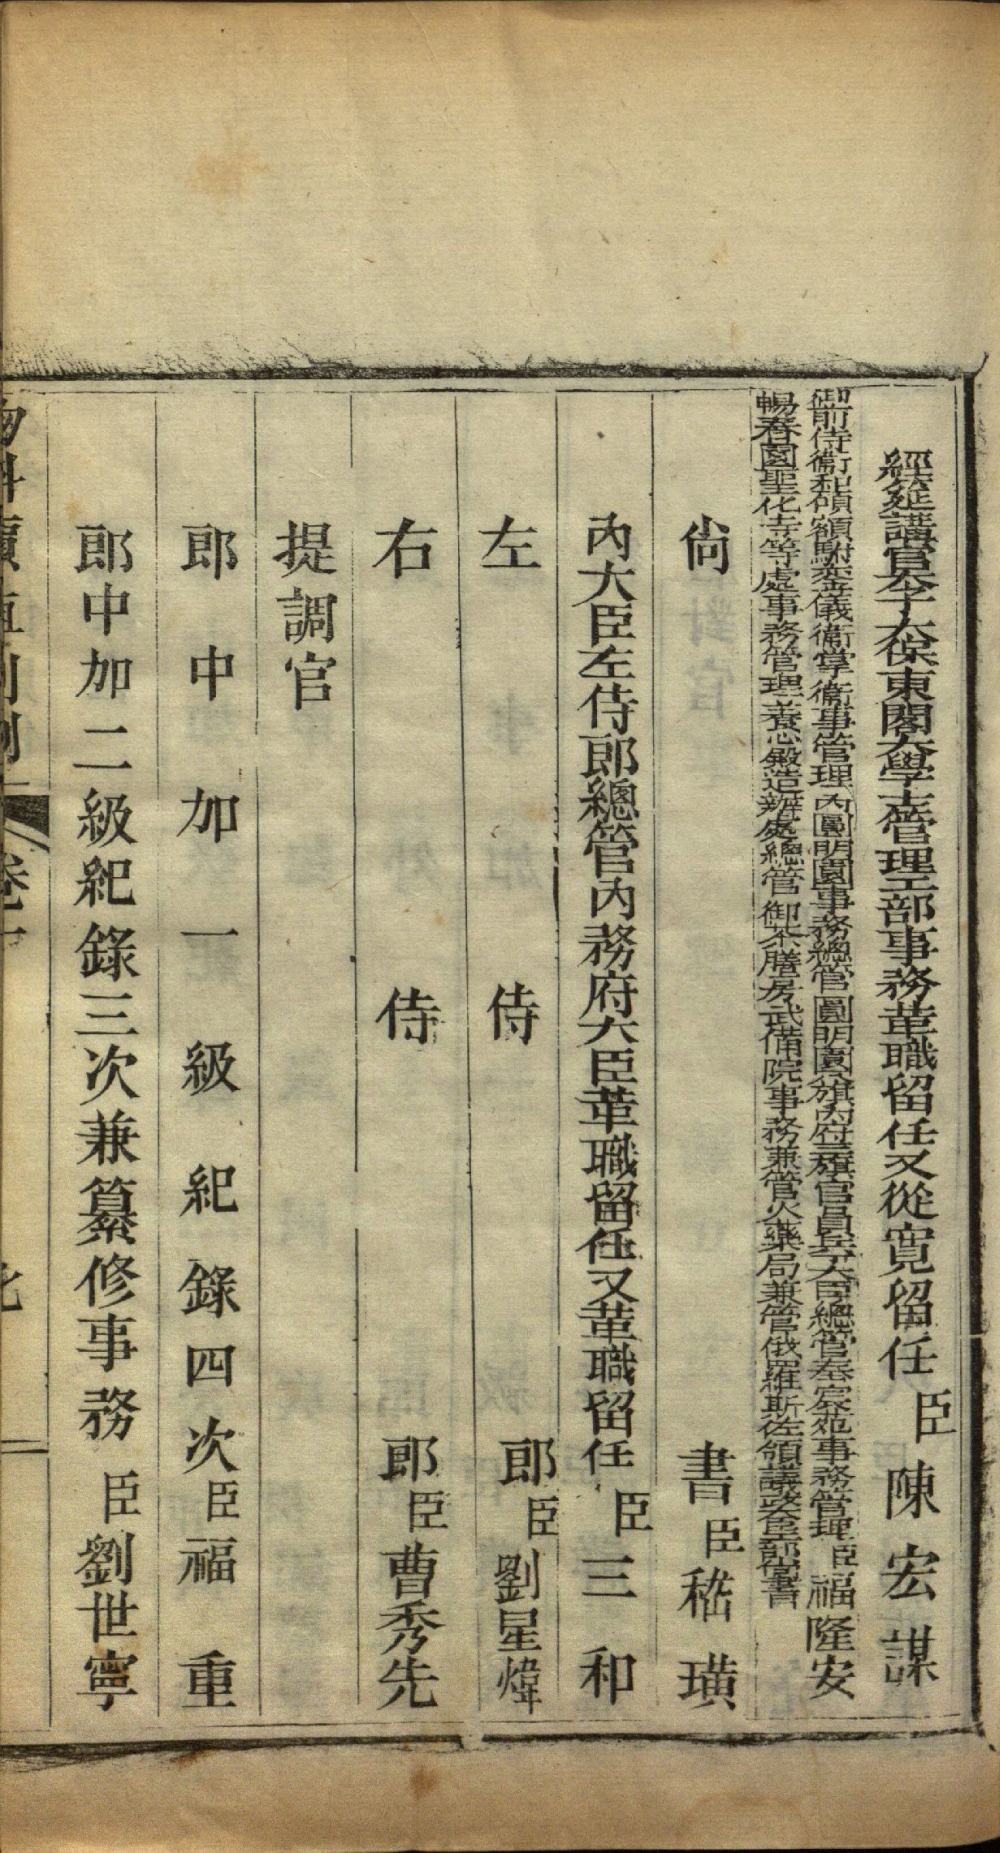 經筵講官太子太保東閣大學士管理工部事務革職留任又從寬留任臣陳宏謀
御前侍衛和碩額駙鑾儀衛掌衛事管理內圓明園事務總管圓明園八旗內府三旗官員兵丁大臣總管奉宸苑事務管理臣福隆安
暢春園聖化寺等處事務管理養心殿造辦處總管御茶膳房武備院事務兼管火藥局兼管俄羅斯佐領議政大臣工部尚書
尚書臣嵇璜
內大臣左侍郎總管內務府大臣革職留任又革職留任臣三和
左侍郎臣劉星煒
右侍郎臣曹秀先
提調官
郎中加一級紀錄四次臣福重
郎中加二級紀錄三次兼纂修事務臣劉世寧
物料價值則例 卷一